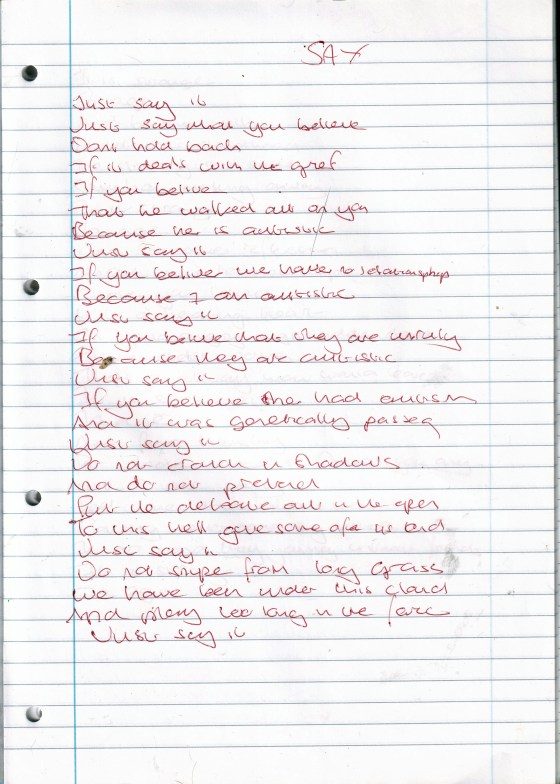 SAY
Just say it
Just say what you believe
Dont hold back
If it deals with the greif
If you belive
That he walked out on you
Because he is autistic
Just say it
If you believe we have no relationships
Because I am autistic
Just say it
If you believe that they are unruly
Because they are autistic
Just say it
If you believe she had autism
And it was genetically passed
Just say it
Do not crouch in shadows
And do not pretend
Put the debate out in the open
To this hell give some
Just say it
Do not snipe from long grass
We have been under this cloud
And too long in the farce
Just say it